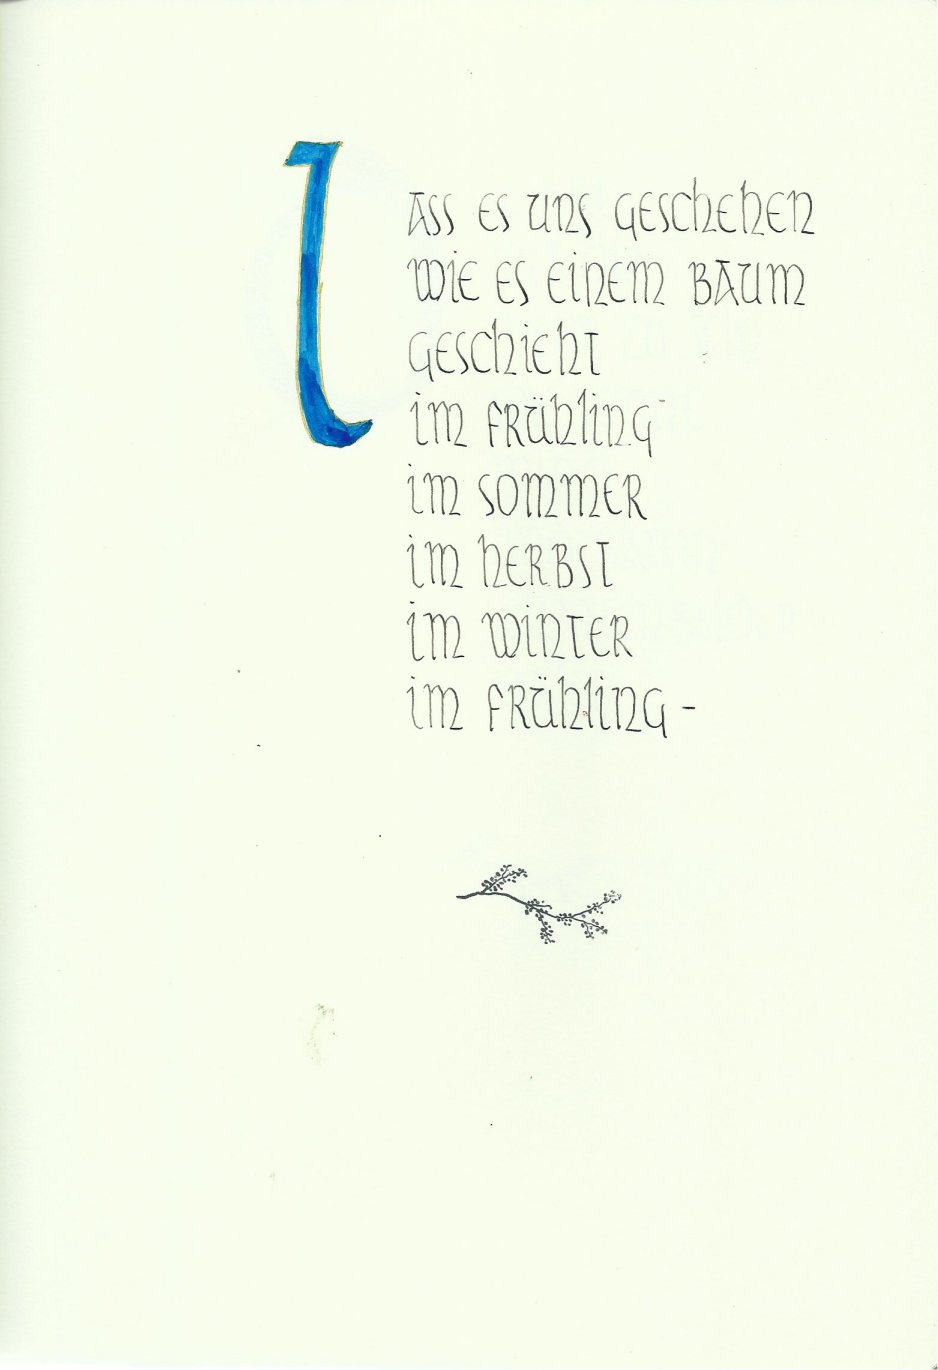 Lass es uns geschehen
wie es einem Baum
geschieht
im Frühling
im Sommer
im Herbst
im Winter
im Frühling -